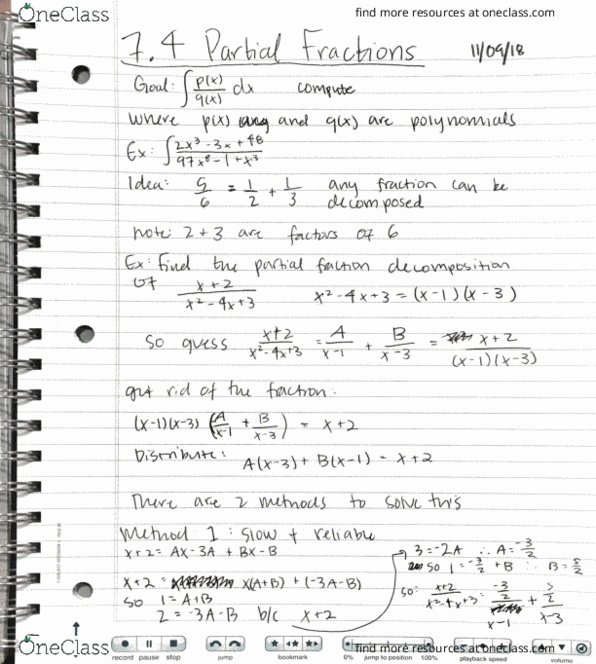 OneClass
find more resources at oneclass.com
7.4 Partial Fractions 11/09/18
Goal: ∫ p(x)/q(x) dx compute
where p(x) and q(x) are polynomials
Ex: ∫ 2x³ - 3x + 48 / 97x⁸ - 1 + x³
Idea: 5/6 = 1/2 + 1/3 any fraction can be
decomposed
note: 2 + 3 are factors of 6
Ex: Find the partial fraction decomposition
of x + 2 / x² - 4x + 3 x² - 4x + 3 = (x - 1)(x - 3)
so guess x+2 / x² - 4x + 3 = A / x - 1 + B / x - 3 = x + 2 / (x - 1)(x - 3)
get rid of the fraction:
(x-1)(x-3) (A / x-1 + B / x-3) = x + 2
Distribute: A(x-3) + B(x-1) = x + 2
There are 2 methods to solve this
Method 1: slow + reliable
x + 2 = Ax - 3A + Bx - B
x + 2 = x(A+B) + (-3A - B)
so 1 = A + B
2 = -3A - B b/c x + 2
3 = -2A ∴ A = -3/2
so 1 = -3/2 + B ∴ B = 5/2
so: x+2 / x² - 4x + 3 = -3/2 / x-1 + 5/2 / x-3
OneClass
find more resources at oneclass.com
record pause stop jump bookmark 0% jump to position 100% playback speed volume